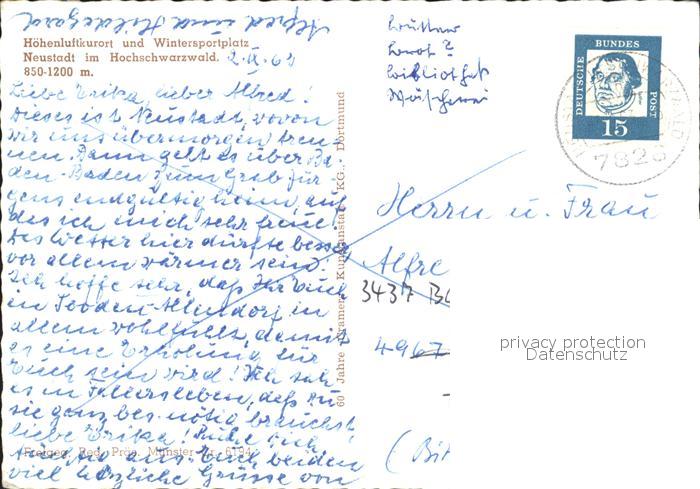 Alfred und Hildegard
Höhenluftkurort und Wintersportplatz
Neustadt im Hochschwarzwald.
850-1200 m.
2. IX. 62
Liebe Erika, lieber Alfred!
Dieses ist Neustadt, wovon
wir uns übermorgen tren-
nen. Dann geht es über Ba-
den-Baden zum Grab für-
gens endgültig heim, auf
das ich mich sehr freue.
Das Wetter hier dürfte besser
vor allem wärmer sein.
Ich hoffe sehr, daß Ihr Euch
in Sooden-Allendorf in
allem wohlfühlt, damit
es eine Erholung für
Euch sein wird! Ich sah
es in Fallersleben, daß Du
sie ganz bes. nötig brauchst,
liebe Erika!
Euch beiden
viel herzliche Grüsse von
Freigeg. Reg. Präs. Münster Nr. 6194
60 Jahre Cramers Kunstanstalt KG., Dortmund
Bibliothek
DEUTSCHE BUNDESPOST
15
7820
Herrn u. Frau
Alfre
3437
4967
privacy protection
Datenschutz
(Bit